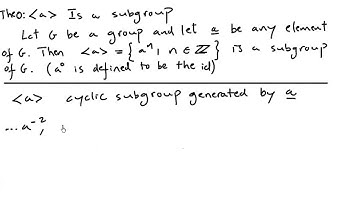 Theo: <a> Is a subgroup
Let G be a group and let a be any element
of G. Then <a> = {a^n, n ∈ ℤ} is a subgroup
of G. (a° is defined to be the id)
<a> cyclic subgroup generated by a
... a^-2,